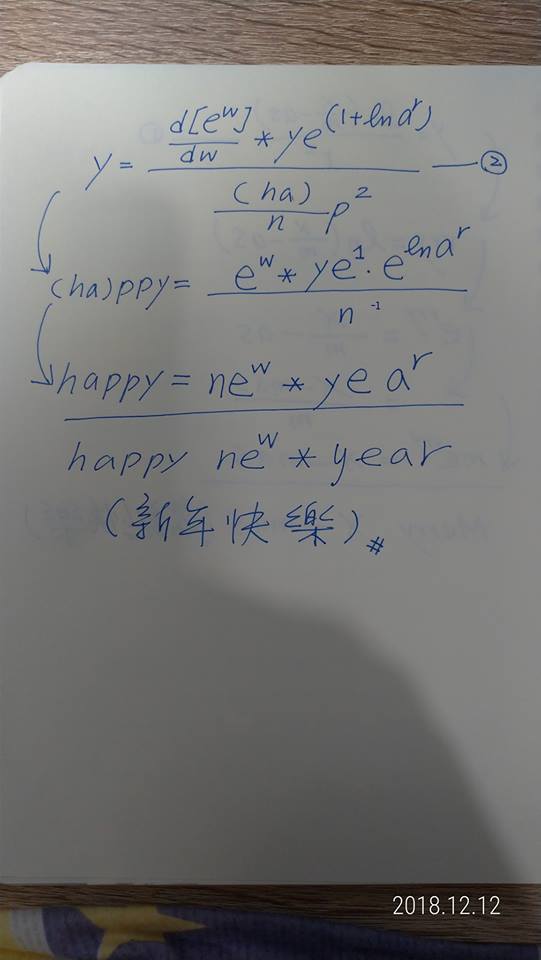 y = d[e^w]/dw * ye^(1+ln a^r) / (ha)/n p^2 — ②
(ha)ppy = e^w * ye^1 · e^ln a^r / n^-1
happy = ne^w * y e a^r
happy ne^w * year
(新年快樂)#
2018.12.12